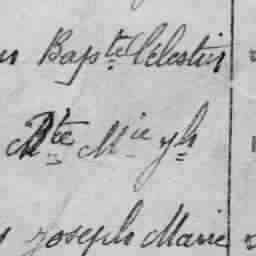 Bapte Célestin
Bte Mie Jh
Joseph Marie